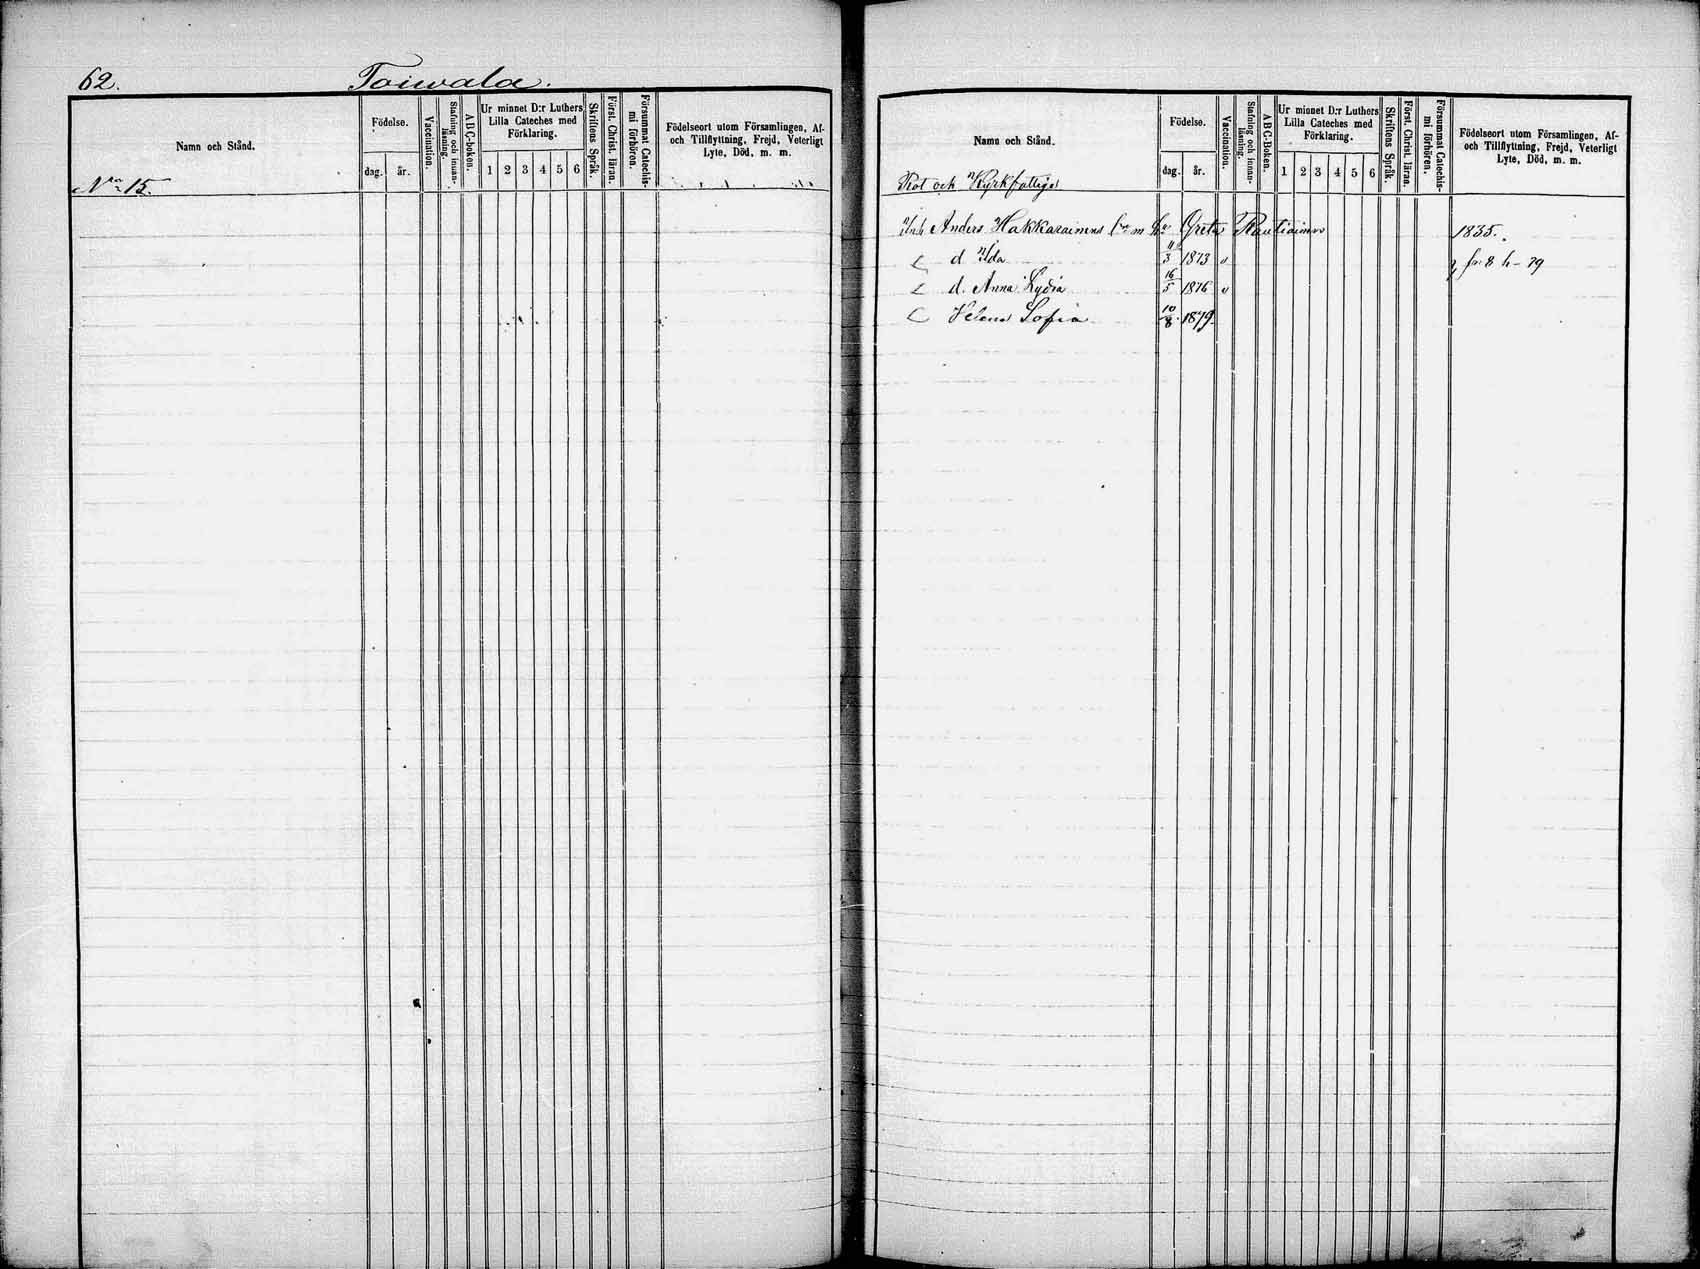 62. Toiwala.
Namn och Stånd.
Födelse.
dag. år.
Vaccination.
Stafning och innanläsning.
ABC-boken.
Ur minnet D:r Luthers
Lilla Cateches med
Förklaring.
1 2 3 4 5 6
Skriftens Språk.
Först. Christ. läran.
Försummat Catechismi förhören.
Födelseort utom Församlingen, Af-
och Tillflyttning, Frejd, Veterligt
Lyte, Död, m. m.
N:ro 15.
Namn och Stånd.
Födelse.
dag. år.
Vaccination.
Stafning och innanläsning.
ABC-Boken.
Ur minnet D:r Luthers
Lilla Cateches med
Förklaring.
1 2 3 4 5 6
Skriftens Språk.
Först. Christ. läran.
Försummat Catechismi förhören.
Födelseort utom Församlingen, Af-
och Tillflyttning, Frejd, Veterligt
Lyte, Död, m. m.
Rot och Kyrkfattige
Inh Anders Hakkarainens Greta Rautiainen 1835.
d Ida 11/3 1873 v fr 8 h - 79
d. Anna Lydia 16/5 1876 v
Helena Sofia 10/8 1879